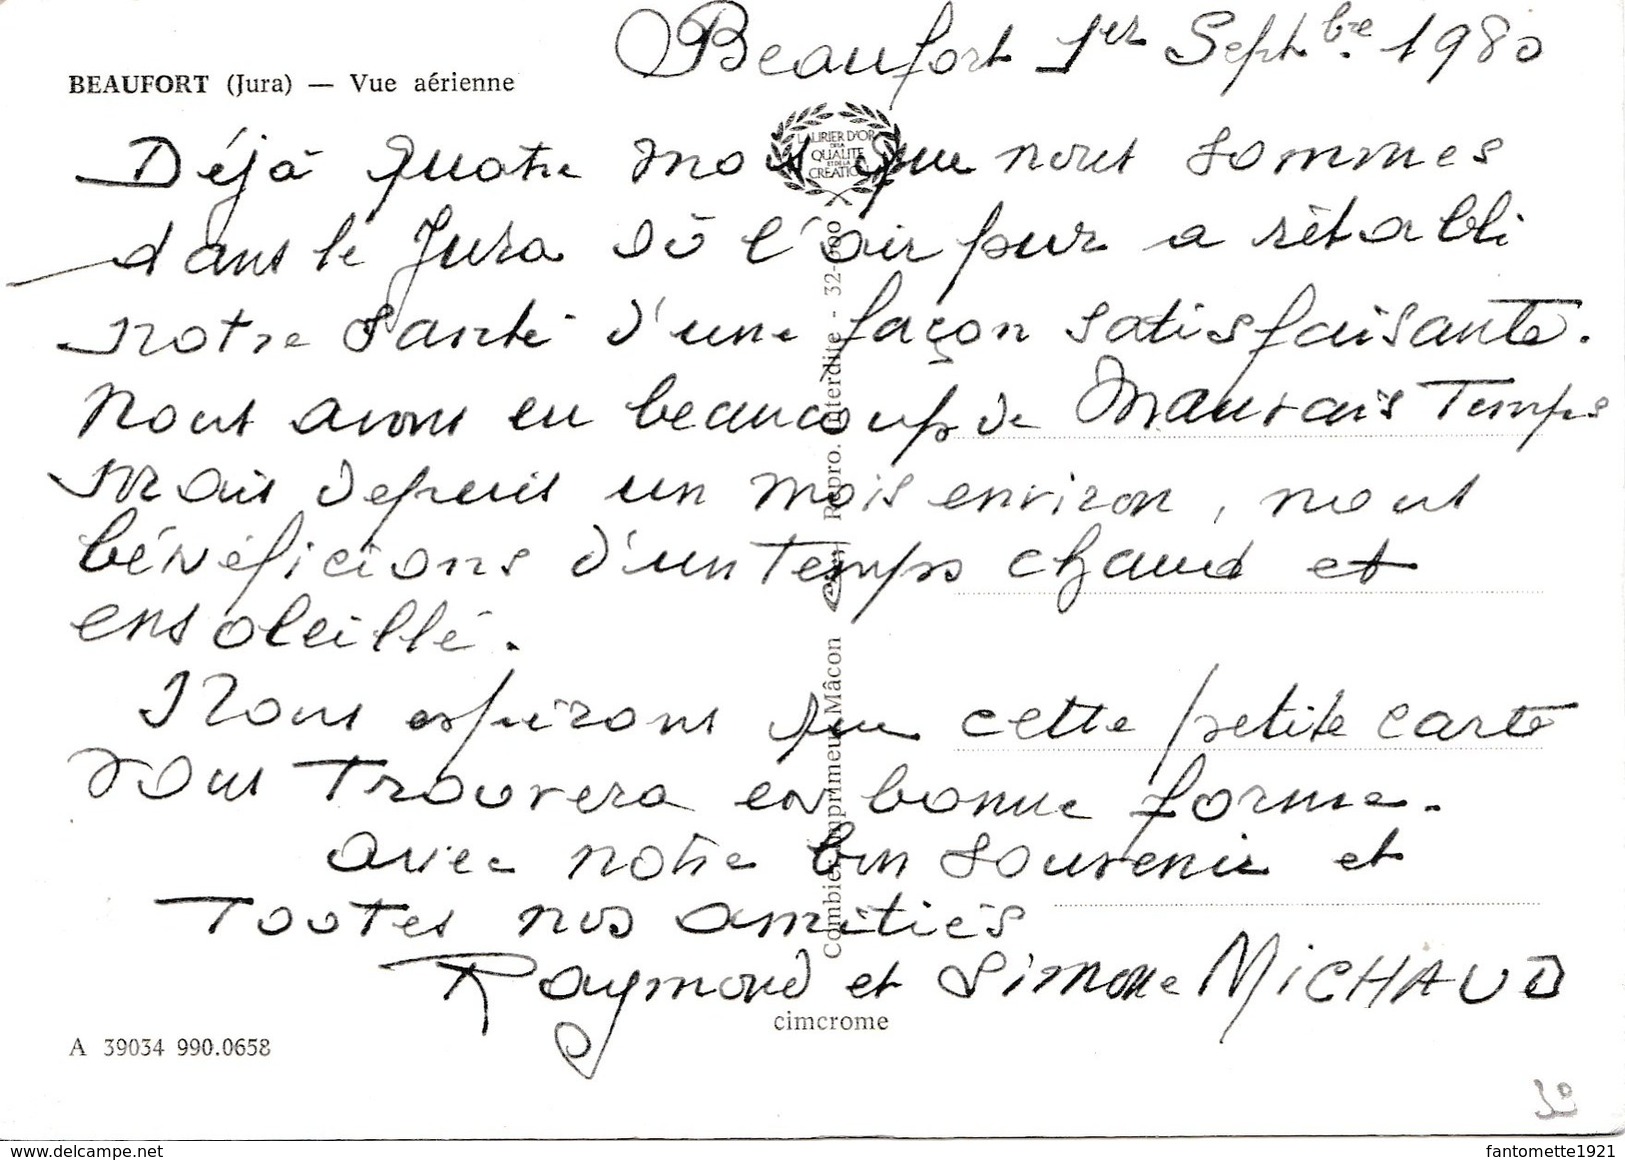 Beaufort 1er Septbre. 1980
BEAUFORT (Jura) — Vue aérienne
LAURIER D'OR
DE LA
QUALITE
ET DE LA
CREATION
Déjà quatre mois que nous sommes
dans le Jura où l'air pur a rétabli
notre santé d'une façon satisfaisante.
Nous avons eu beaucoup de mauvais Temps
mais depuis un mois environ, nous
bénéficions d'un Temps chaud et
ensoleillé.
Nous espérons que cette petite carte
vous Trouvera en bonne forme.
avec notre bon souvenir et
Toutes nos amitiés
Raymond et Simone MICHAUD
Combier imprimeur Mâcon
Repro. interdite - 32-600
cimcrome
A 39034 990.0658
www.delcampe.net
fantomette1921